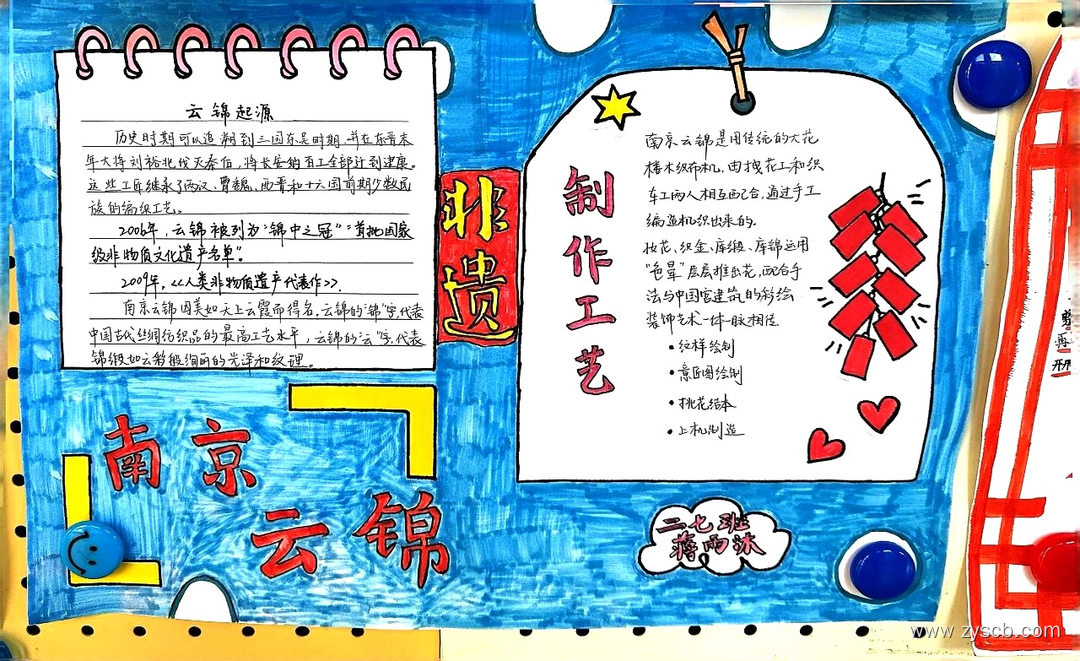 云锦起源
历史时期可以追溯到三国东吴时期,并在东晋末
年大将刘裕北伐灭秦后,将长安的百工全部迁到建康。
这些工匠继承了两汉、曹魏、西晋和十六国前期少数民
族的编织工艺。
2006年,云锦被列为“锦中之冠”“首批国家
级非物质文化遗产名单”。
2009年,<<人类非物质遗产代表作>>.
南京云锦因美如天上云霞而得名.云锦的“锦”字代表
中国古代丝绸纺织品的最高工艺水平,云锦的“云”字代表
锦缎如云彩般绚丽的光泽和纹理。
非遗
南京
云锦
制作工艺
南京云锦是用传统的大花
楼木织布机,由拽花工和织
车工两人相互配合,通过手工
编造机织出来的.
妆花、织金、库缎、库锦运用
“色晕”层层推出花,配合手
法与中国宫建筑的彩绘
装饰艺术一体一脉相径.
• 纹样绘制
• 意匠图绘制
• 挑花结本
• 上机制造
二七班
蒋雨沐
www.zyscb.com